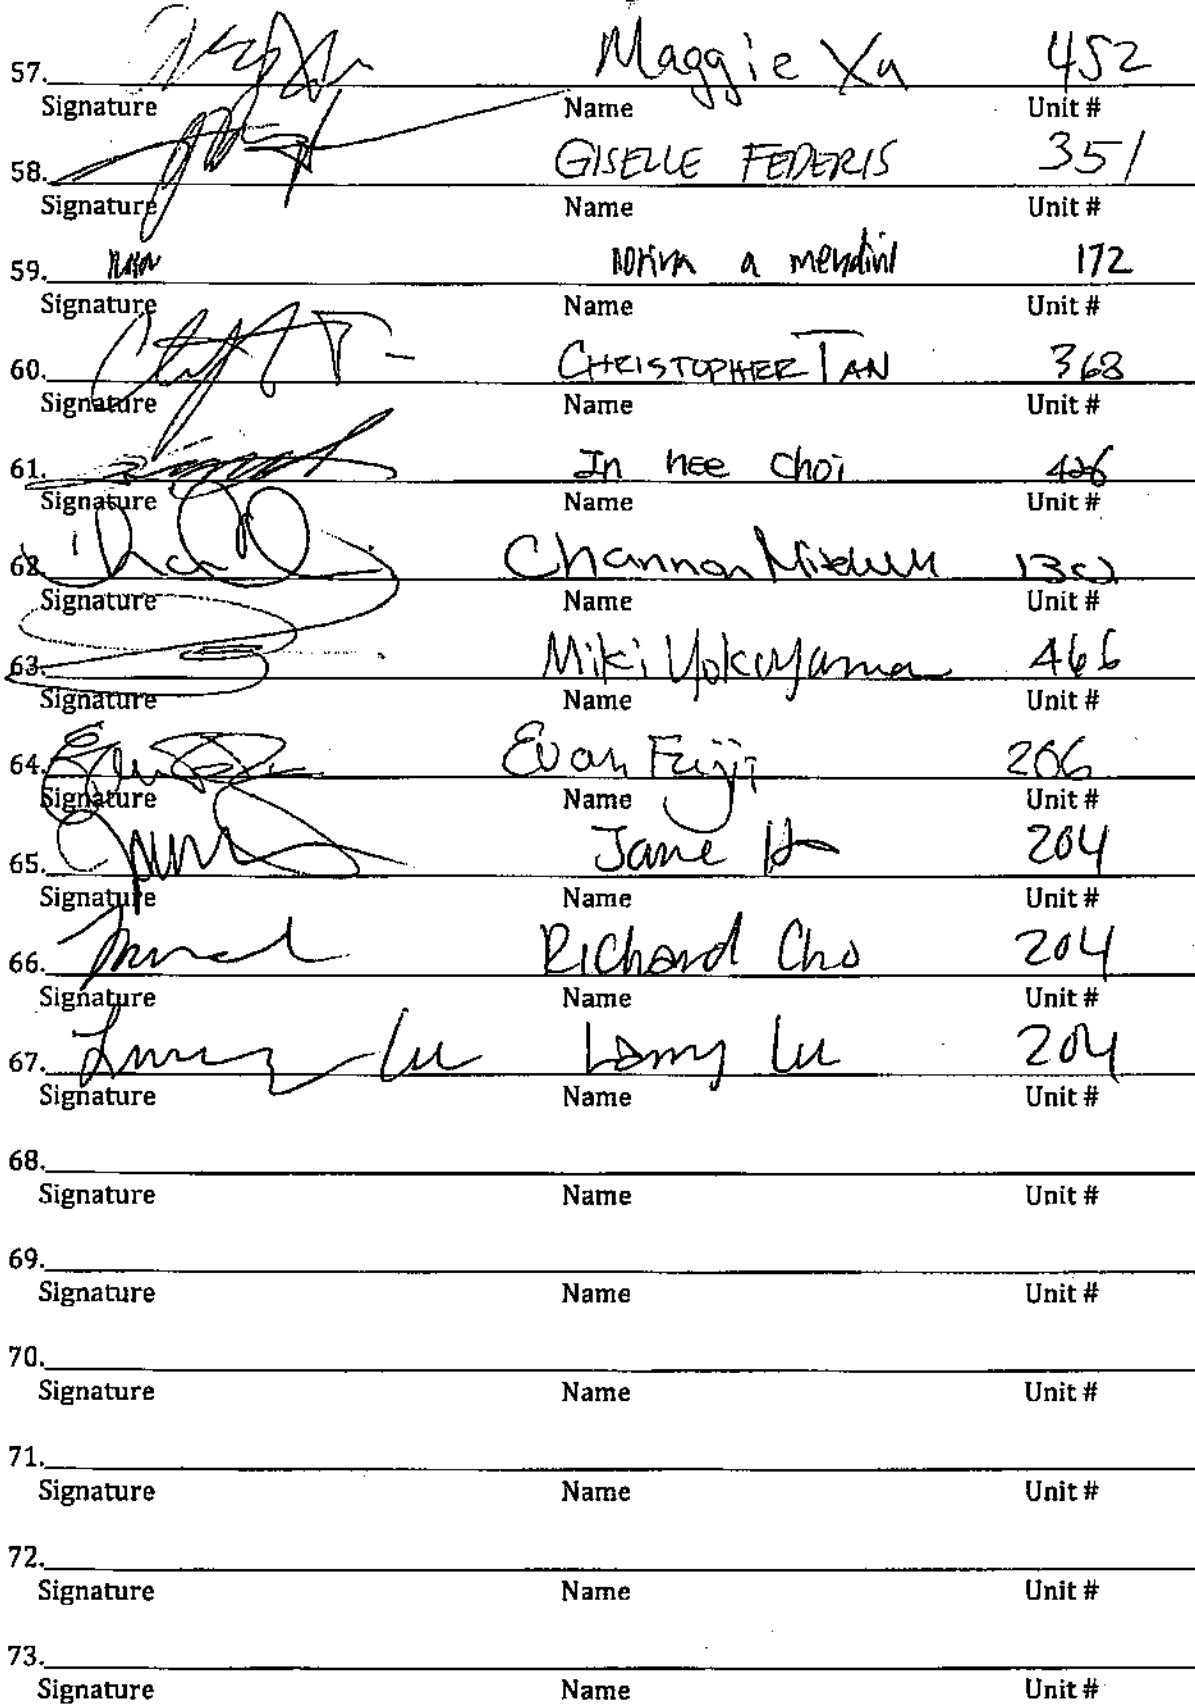 57. Maggie Xu 452
Signature Name Unit #
58. GISELLE FEDERIS 351
Signature Name Unit #
59. a 172
Signature Name Unit #
60. CHRISTOPHER TAN 368
Signature Name Unit #
61. In hee choi 426
Signature Name Unit #
62. Channon
Signature Name Unit #
63. Miki Yokoyama 466
Signature Name Unit #
64. Evan Fujii 206
Signature Name Unit #
65. Jane 204
Signature Name Unit #
66. Richard Cho 204
Signature Name Unit #
67. Lu Larry Lu 204
Signature Name Unit #
68.
Signature Name Unit #
69.
Signature Name Unit #
70.
Signature Name Unit #
71.
Signature Name Unit #
72.
Signature Name Unit #
73.
Signature Name Unit #